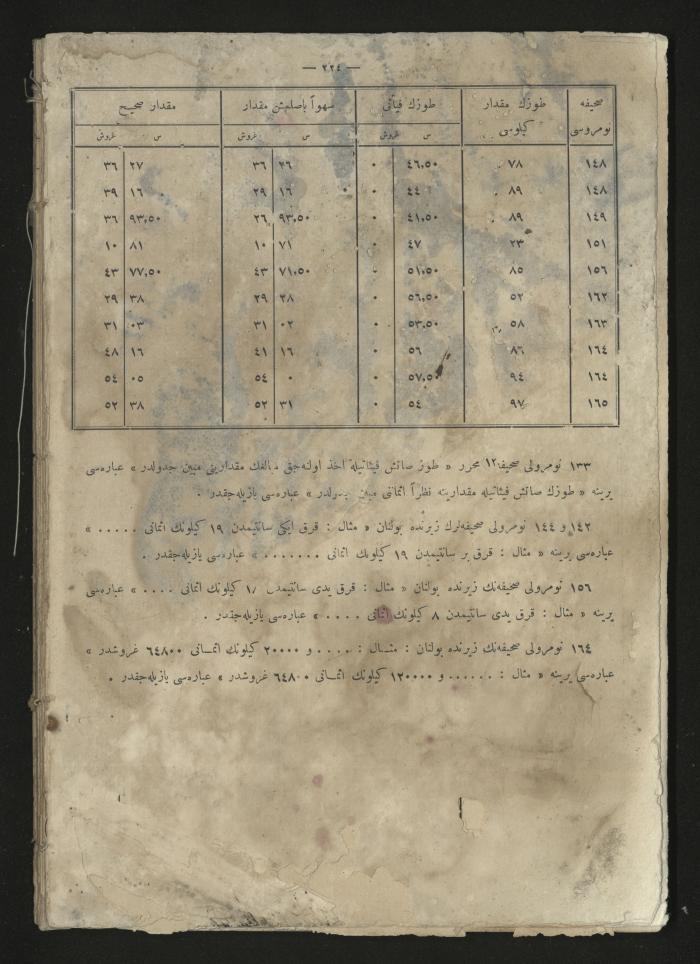 — ٢٢٤ —
صحیفه نومروسی | طوزك مقدار كیلوسی | طوزك فیأتی | سهواً باصلمش مقدار | مقدار صحیح
س غروش | س غروش | س غروش
١٤٨ ٧٨ ٤٦,٥٠ ٠ ٢٦ ٣٦ ٢٧ ٣٦
١٤٨ ٨٩ ٤٤ ٠ ١٦ ٢٩ ١٦ ٣٩
١٤٩ ٨٩ ٤١,٥٠ ٠ ٩٣,٥٠ ٢٦ ٩٣,٥٠ ٣٦
١٥١ ٢٣ ٤٧ ٠ ٧١ ١٠ ٨١ ١٠
١٥٦ ٨٥ ٥١,٥٠ ٠ ٧١,٥٠ ٤٣ ٧٧,٥٠ ٤٣
١٦٢ ٥٢ ٥٦,٥٠ ٠ ٢٨ ٢٩ ٣٨ ٢٩
١٦٣ ٥٨ ٥٣,٥٠ ٠ ٠٢ ٣١ ٠٣ ٣١
١٦٤ ٨٦ ٥٦ ٠ ١٦ ٤١ ١٦ ٤٨
١٦٤ ٩٤ ٥٧,٥٠ ٠ ٠ ٥٤ ٠٥ ٥٤
١٦٥ ٩٧ ٥٤ ٠ ٣١ ٥٢ ٣٨ ٥٢
١٣٣ نومرولی صحیفه محرر « طوز صاتش فیئاتیله اخذ اولنه‌جق مبالغك مقدارینی مبین جدولدر » عباره‌سی
یرینه « طوزك صاتش فیئاتیله مقدارینه نظراً اثماننی مبین جدولدر » عباره‌سی یازیله‌جقدر .
١٤٢ و ١٤٤ نومرولی صحیفه‌لرك زیرنده بولنان « مثال : قرق ایكی سانتیمدن ١٩ كیلونك اثمانی ..... »
عباره‌سی یرینه « مثال : قرق بر سانتیمدن ١٩ كیلونك اثمانی ....... » عباره‌سی یازیله‌جقدر .
١٥٦ نومرولی صحیفه‌نك زیرنده بولنان « مثال : قرق یدی سانتیمدن كیلونك اثمانی .... » عباره‌سی
یرینه « مثال : قرق یدی سانتیمدن ٨ كیلونك اثمانی .... » عباره‌سی یازیله‌جقدر .
١٦٤ نومرولی صحیفه‌نك زیرنده بولنان : مثــال : .... و ٢٠٠٠٠ كیلونك اثمــانی ٦٤٨٠٠ غروشدر »
عباره‌سی یرینه « مثال : ...... و ١٢٠٠٠٠ كیلونك اثمــانی ٦٤٨٠٠ غروشدر » عباره‌سی یازیله‌جقدر .